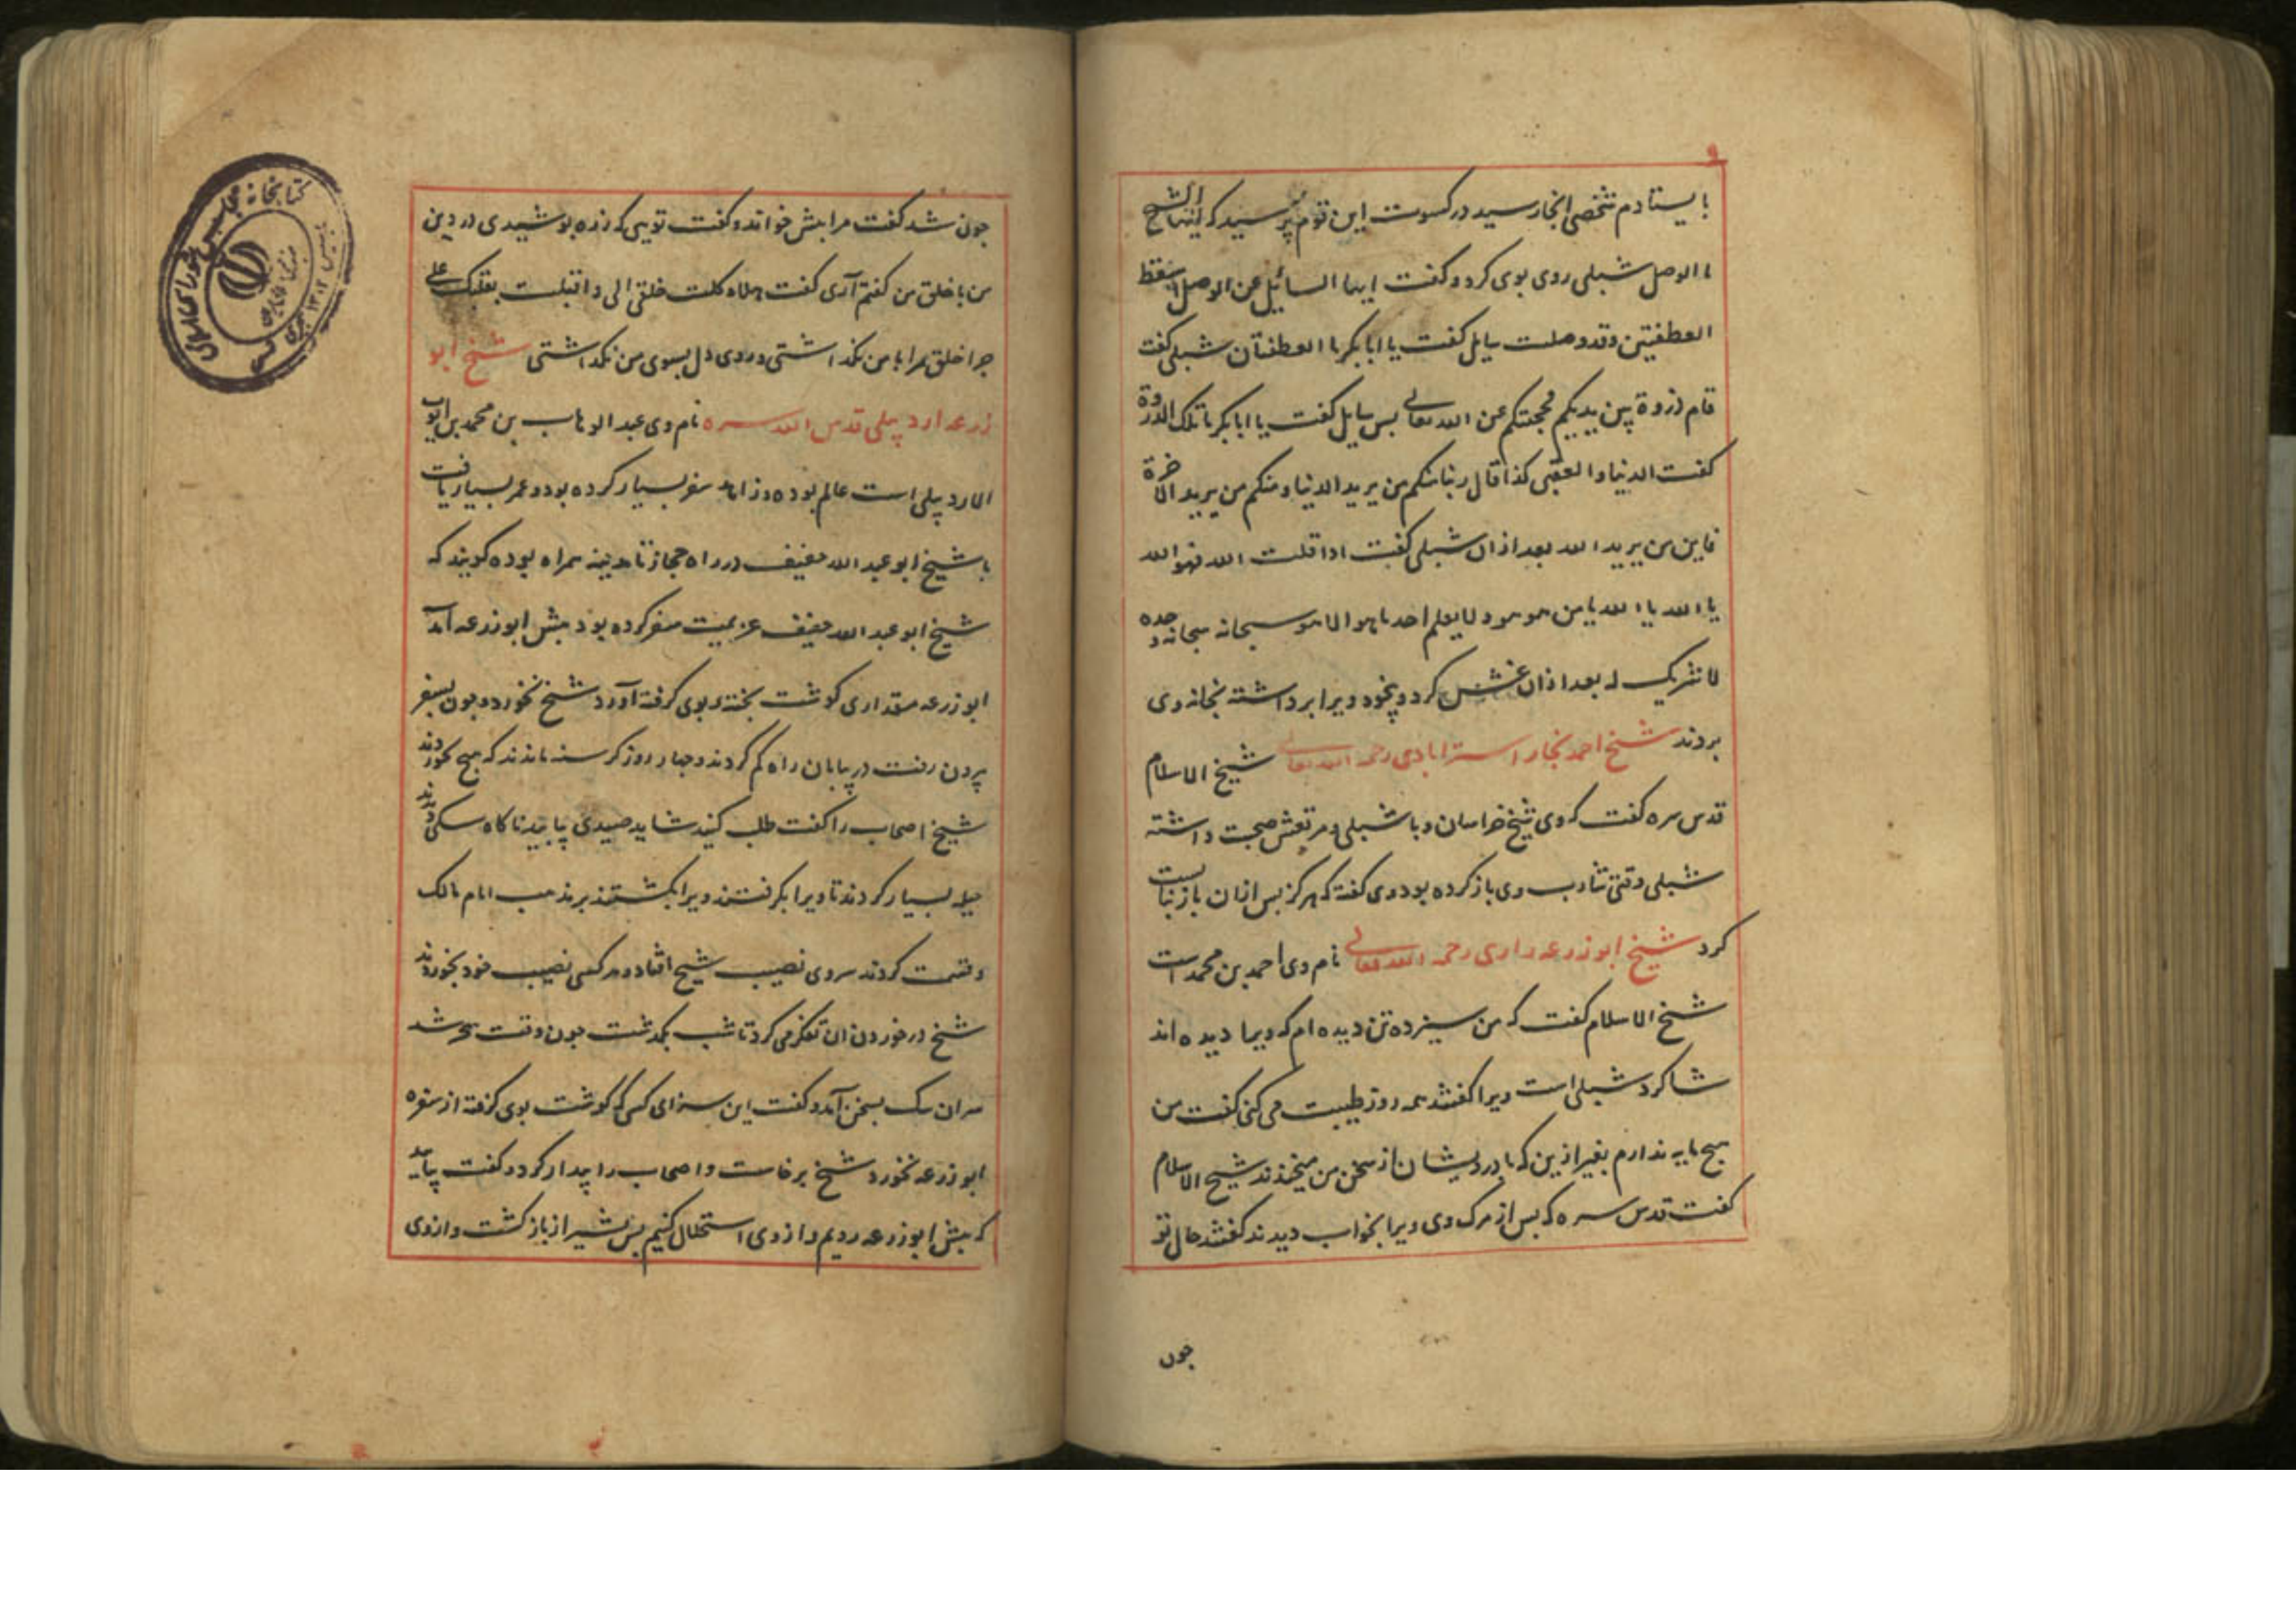 بایستادم شخصی انجا رسید در کسوت این قوم پرسید که ایها الشیخ
ما الوصل شبلی روی بوی کرد و کفت ایها السائل عن الوصل اسقط
العطفتین وقد وصلت سایل کفت یا ابا بکر ما العطفتان شبلی کفت
قام ذروة بین یدیکم فحجبتکم عن الله تعالی بس سایل کفت یا ابا بکر ما تلک الذروة
کفت الدنیا والعقبی کذا قال ربنا منکم من یرید الدنیا ومنکم من یرید الاخرة
فاین من یرید الله بعد ازان شبلی کفت اذا قلت الله فهو الله
یا الله یا الله یا من هو هو ولا یعلم احد ما هو الا هو سبحانه سبحانه وحده
لا شریک له بعد ازان غشش کرد و بیخود ویرا برداشته بخانه وی
بردند شیخ احمد نجار استرابادی رحمه الله تعالی شیخ الاسلام
قدس سره کفت که وی شیخ خراسان و با شبلی و مرتعش صحبت داشته
شبلی وقتی شارب وی باز کرده بود وی کفته که هرکز بس ازان باز نبایست
کرد شیخ ابو زرعه رازی رحمه الله تعالی نام وی احمد بن محمد است
شیخ الاسلام کفت که من سیزده تن دیده ام که ویرا دیده اند
شاکرد شبلی است ویرا کفتند همه روز طیبت می کنی کفت من
هیچ مایه ندارم بغیر ازین که با درویشان از سخن من میخندند شیخ الاسلام
کفت قدس سره که بس از مرک وی ویرا بخواب دیدند کفتند حال تو
جون
جون شد کفت مرا بیش خواند و کفت تویی که زره بوشیدی در دین
من با خلق من کفتم آری کفت هلا وکلت خلقی الی واقبلت بقلبک علی
جرا خلق مرا با من نکذاشتی و روی دل بسوی من نکذاشتی شیخ ابو
زرعه اردبیلی قدس الله سره نام وی عبد الوهاب بن محمد بن ایوب
الاردبیلی است عالم بوده و زاهد سفر بسیار کرده بود و عمر بسیار یافت
با شیخ ابو عبد الله خفیف در راه حجاز تا مدینه همراه بوده کویند که
شیخ ابو عبد الله خفیف عزیمت سفر کرده بود بیش ابو زرعه آمد
ابو زرعه مقداری کوشت بخته و بوی کرفته آورد شیخ نخورد و جون بسفر
بیرون رفت در بیابان راه کم کردند و جهار روز کرسنه ماندند که هیچ نخوردند
شیخ اصحاب را کفت طلب کنید شاید صیدی بیابید ناکاه سکی دیدند
حیله بسیار کردند تا ویرا بکرفتند و ویرا بکشتند بر مذهب امام مالک
و قسمت کردند سر وی نصیب شیخ افتاد و هر کسی نصیب خود بخوردند
شیخ در خوردن ان تفکر می کرد تا شب بکذشت جون وقت سحر شد
سر ان سک بسخن آمد و کفت این سزای کسی که کوشت بوی کرفته از سفره
ابو زرعه نخورد شیخ برخاست و اصحاب را بیدار کرد و کفت بیایید
که بیش ابو زرعه رویم و از وی استحلال کنیم بس بشیراز باز کشت و از وی
کتابخانه مجلس شورای اسلامی